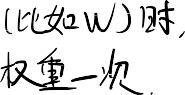 (比如W)时,
权重一次.